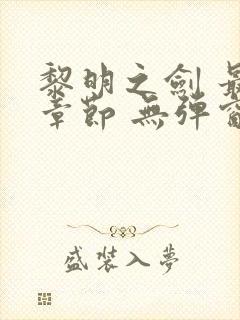 黎明之劍 最
章節 無彈窗
盛裝入夢